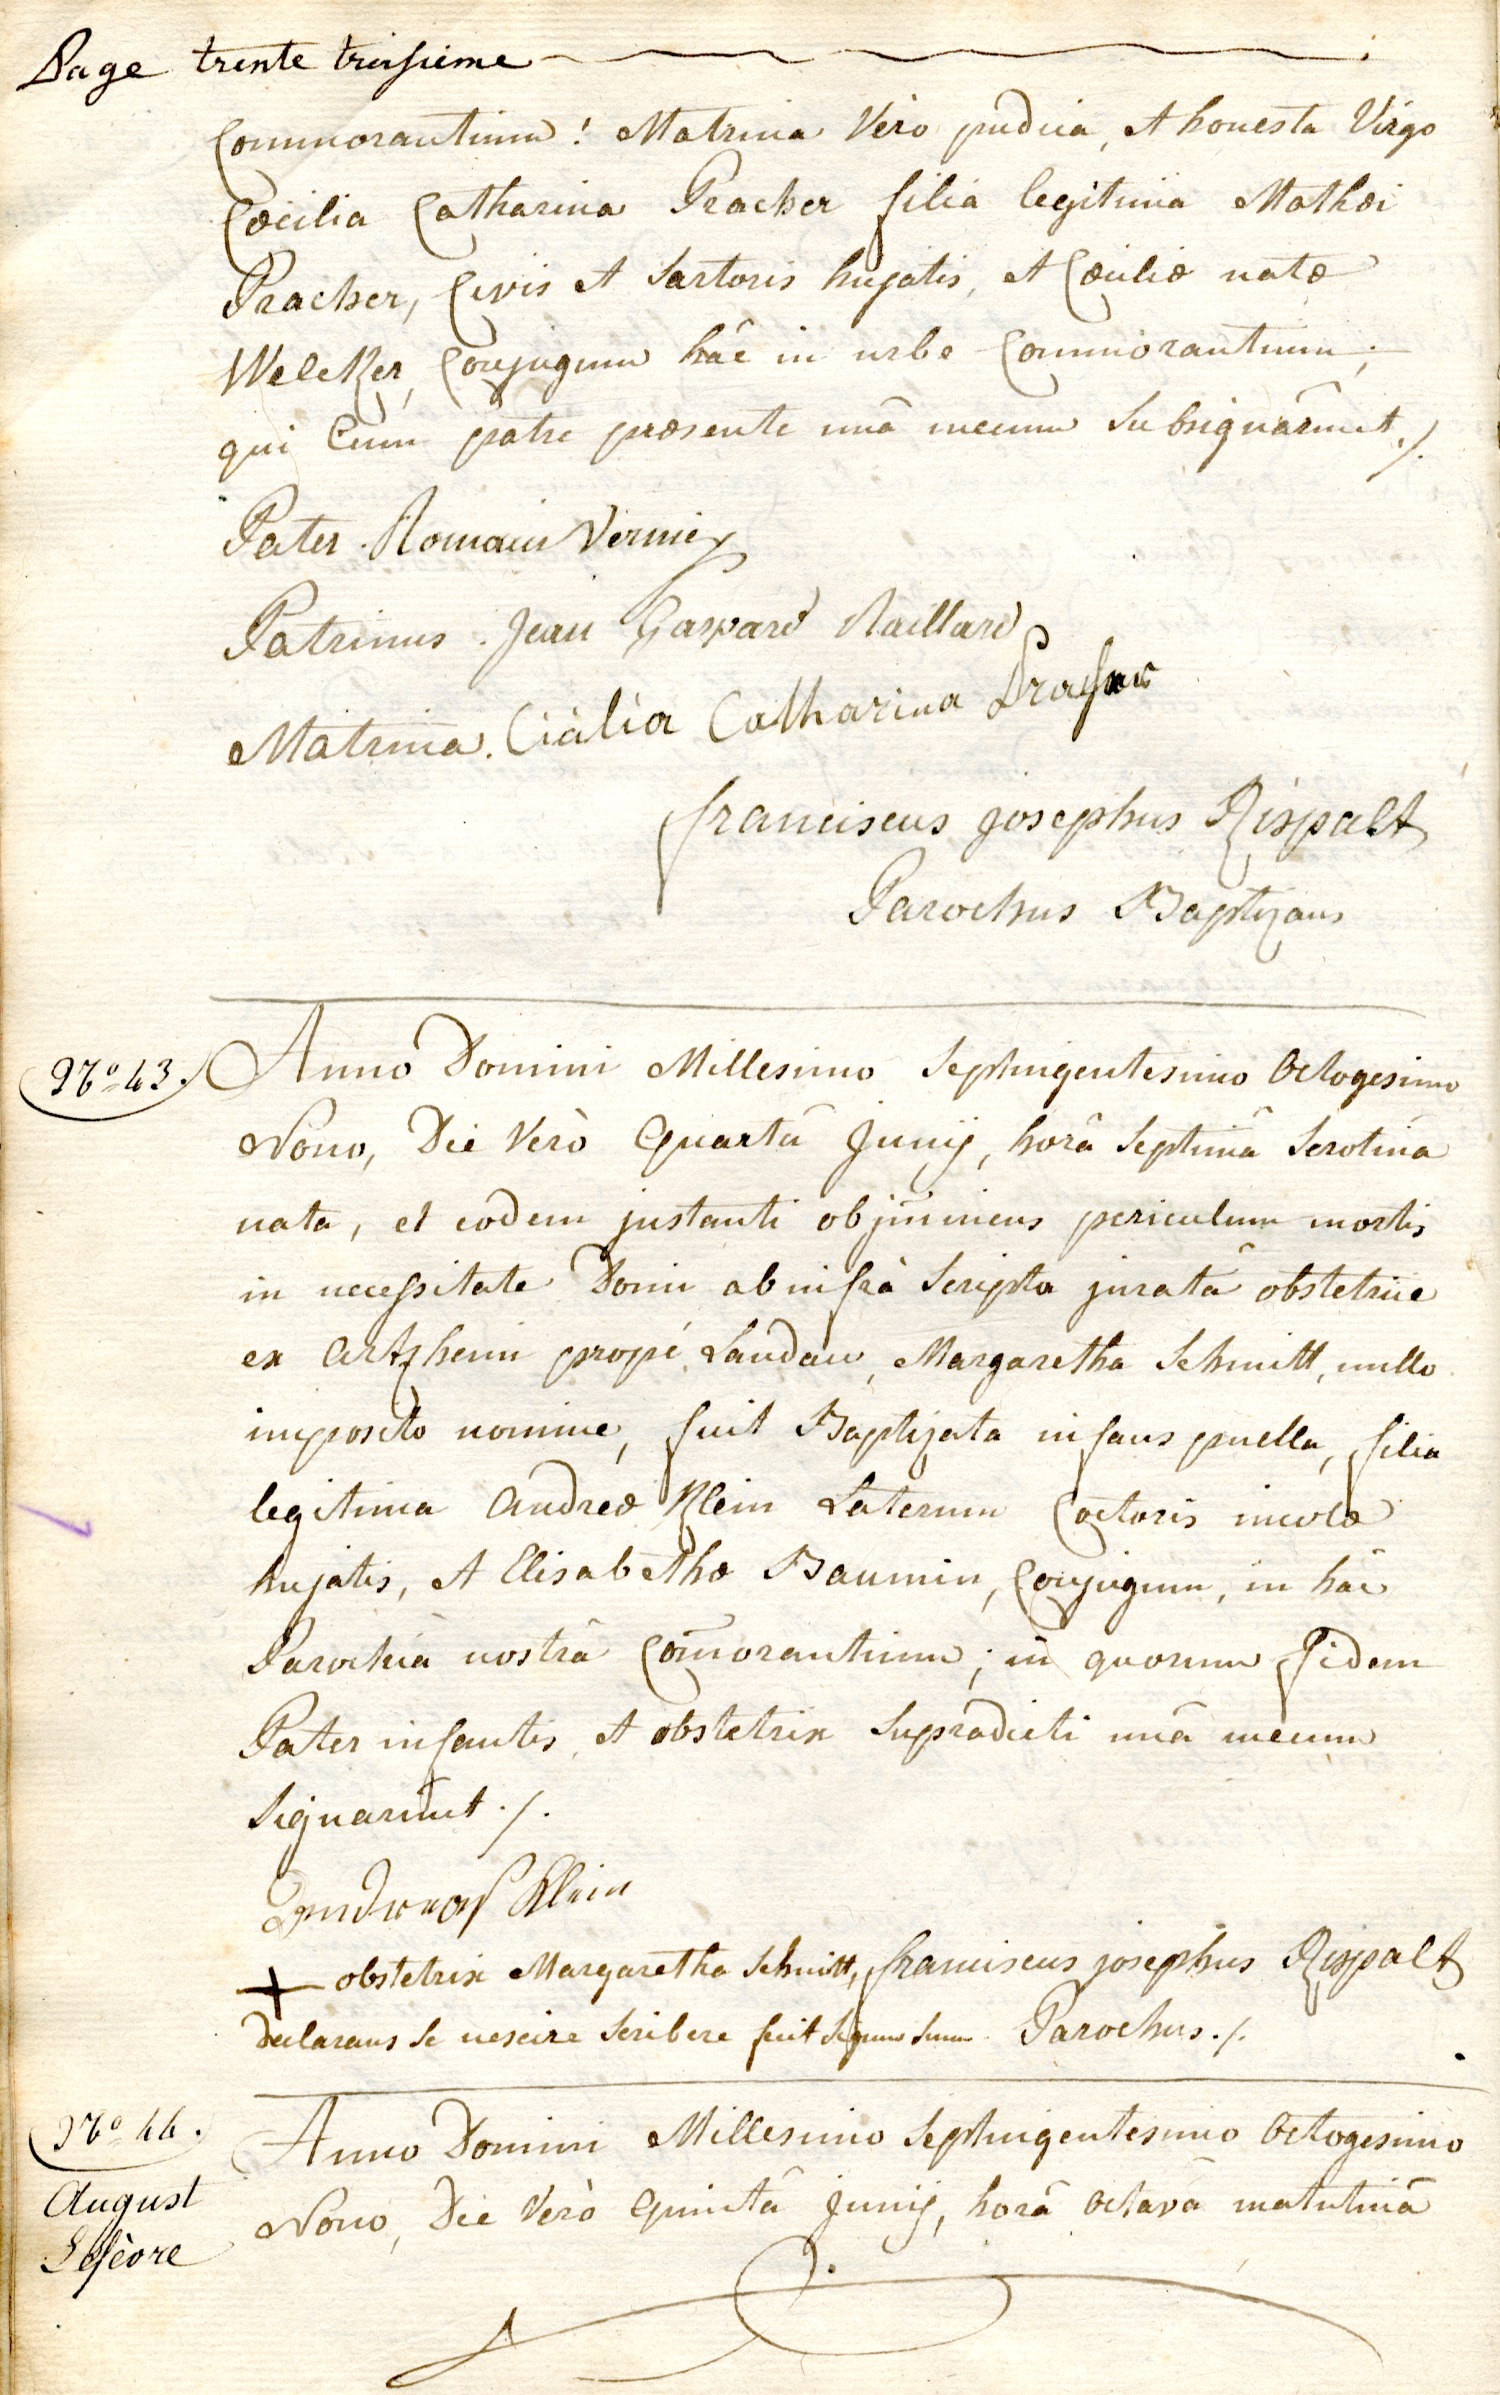 Page trente troisieme
Commorantium! Matrina Verò pudica, et honesta Virgo
Cæcilia Catharina Pracher filia legitima Mathæi
Pracher, Civis et Sartoris hujatis, et Cæciliæ natæ
Welcker, Conjugum hâc in urbe Commorantium;
qui Cum patre præsente unâ mecum Subsignârunt ./.
Pater. Romain Vernier
Patrinus. Jean Gaspard Raillard
Matrina. Ciàlia Catharina
franciscus josephus Rispalt
Parochus Baptizans
No 43. Anno Domini Millesimo Septingentesimo Octogesimo
Nono, Die Verò Quartâ Junij, horâ Septimâ Serotinâ
nata, et eodem jnstanti ob jm̄inens periculum mortis
in necessitate Domi ab infrà Scripta juratâ obstetrice
ex Artzheim propé Landau, Margaretha Schmitt, nullo
imposito nomine, fuit Baptizata infans puella, filia
legitima Andreæ Klein Laterum Coctoris incolæ
hujatis, et Elisabethæ Baumin, Conjugum, in hâc
Parochiâ nostrâ Com̄orantium; in quorum fidem
Pater infantis, et obstetrix Supradicti unâ mecum
Signarunt ./.
Andreas Klein
+ obstetrix Margaretha Schmitt, franciscus josephus Rispalt
declarans Se nescire Scribere fecit Signum Suum. Parochus ./.
No 44. Anno Domini Millesimo Septingentesimo Octogesimo
August Nono, Die Verò Quintâ Junij, horâ Octavâ matutinâ
Lefèvre